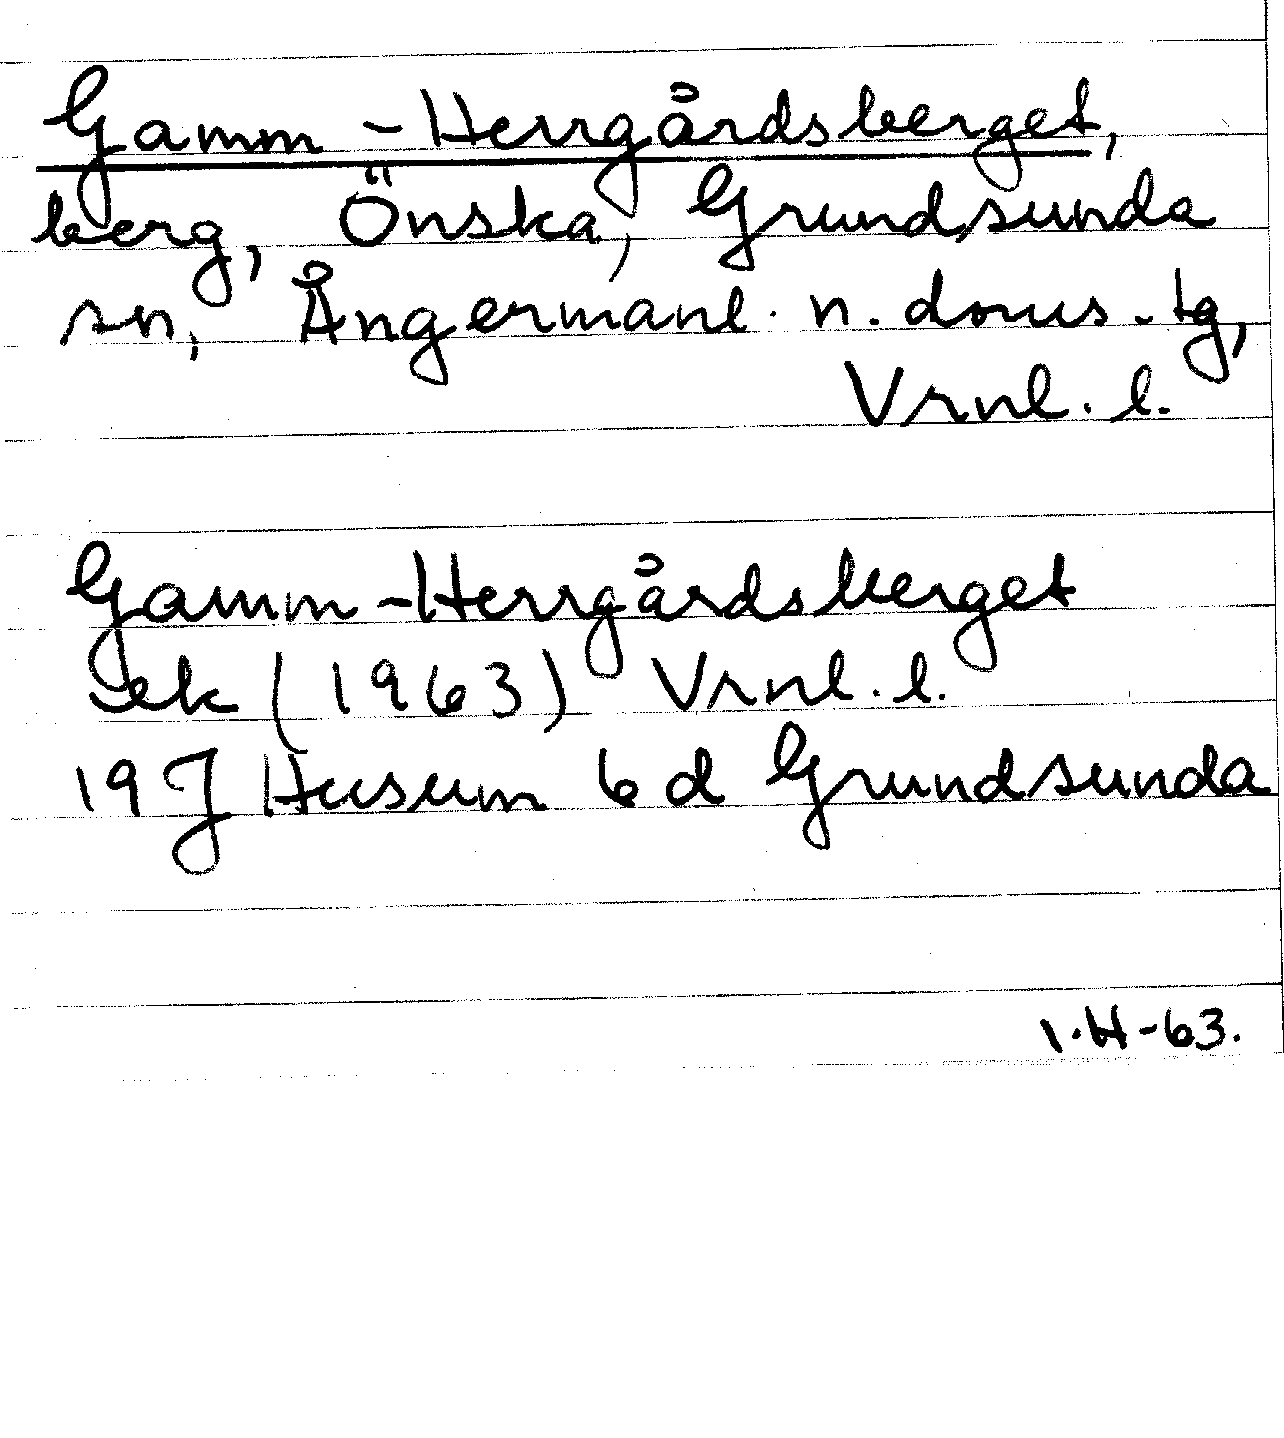 Gamm-Herrgårdsberget,
berg, Önska, Grundsunda
sn, Ångermanl. n. doms. tg,
Vrnl. l.
Gamm-Herrgårdsberget
ek (1963) Vrnl. l.
19 J Husum 6 d Grundsunda
I.H-63.